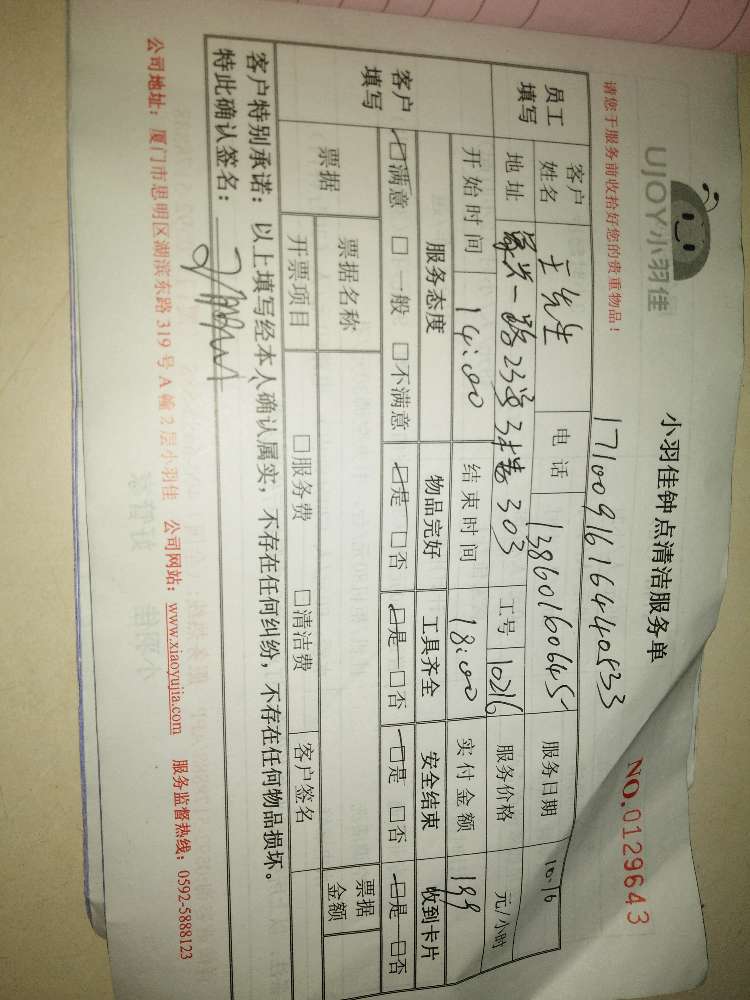 UJOY小羽佳
小羽佳钟点清洁服务单
NO.0129643
请您于服务前收拾好您的贵重物品！
17100916164440533
员工填写 客户姓名 王先生 电话 13860160645 服务日期 10.16
地址 兴一路23号3楼303 工号 10216 服务价格 元/小时
开始时间 14:00 结束时间 18:00 实付金额 199
客户填写 服务态度 物品完好 工具齐全 安全结束 收到卡片
□满意 □一般 □不满意 □是 □否 □是 □否 □是 □否 □是 □否
票据 票据名称 票据金额
开票项目 □服务费 □清洁费 客户签名
客户特别承诺：以上填写经本人确认属实，不存在任何纠纷，不存在任何物品损坏。
特此确认签名：
公司地址：厦门市思明区湖滨东路319号A幢2层小羽佳 公司网站：www.xiaoyujia.com 服务监督热线：0592-5888123